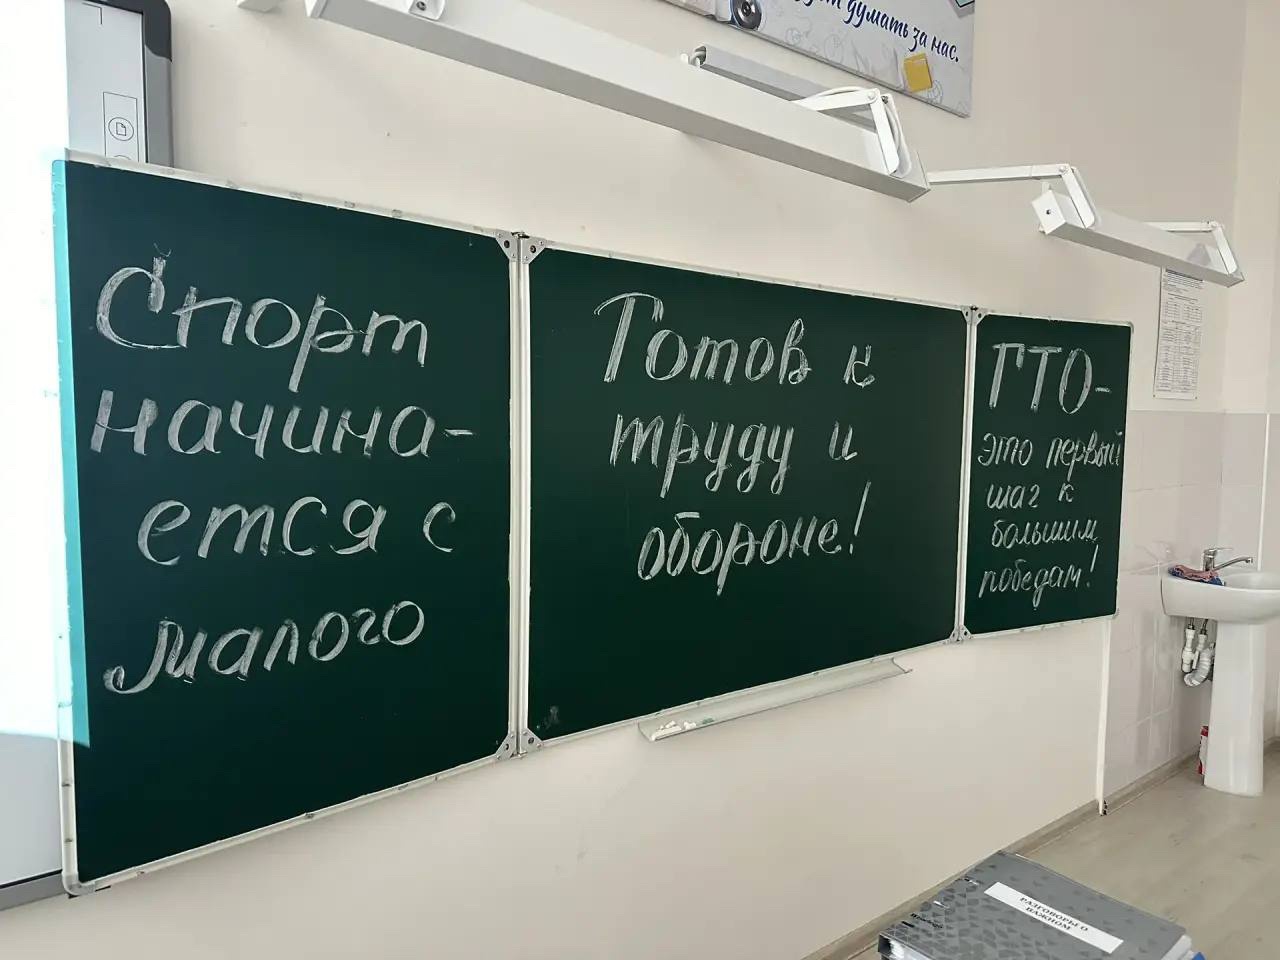 думать за нас.
Спорт
начина-
ется с
малого
Готов к
труду и
обороне!
ГТО-
это первый
шаг к
большим
победам!
РАЗГОВОРЫ О
ВАЖНОМ